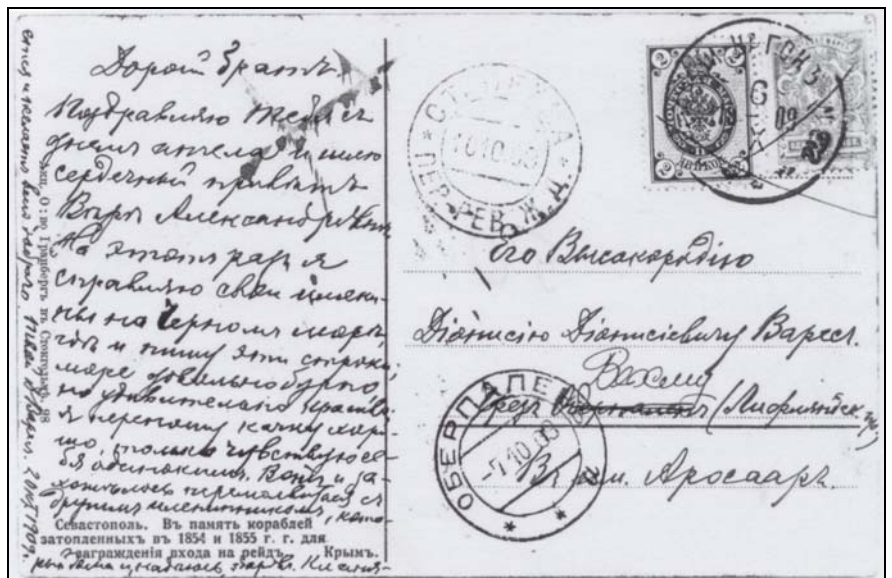 Дорогой братъ.
Поздравляю Тебя съ
днемъ ангела и шлю
сердечный привѣтъ
Вѣрѣ Александровнѣ.
На этотъ разъ я
справляю свои имяни-
ны на Черномъ морѣ,
гдѣ и пишу эти строки,
море довольно бурно,
но удивительно красиво.
Я переношу качку хоро-
шо, только чувствую се-
бя одинокимъ. Вотъ и за-
хотѣлось перемолвиться съ
другимъ имянинникомъ, кото-
Севастополь. Въ память кораблей
затопленныхъ въ 1854 и 1855 г. г. для
загражденія входа на рейдъ. Крымъ.
Акц. О-во Гранбергъ въ Стокгольмѣ
2 окт 1909.
СТЕПЕНКА
10 10 09
ПЕР. РЕВ. Ж. Д.
2 2
ДВѢ КОП.
6
09
Его Высокородію
Діонисію Діонисіевичу Варесъ.
Вахму
(Лифляндск. губ.)
Въ им. Аросааръ.
ОБЕРПАЛЕНЪ
-7 10 09